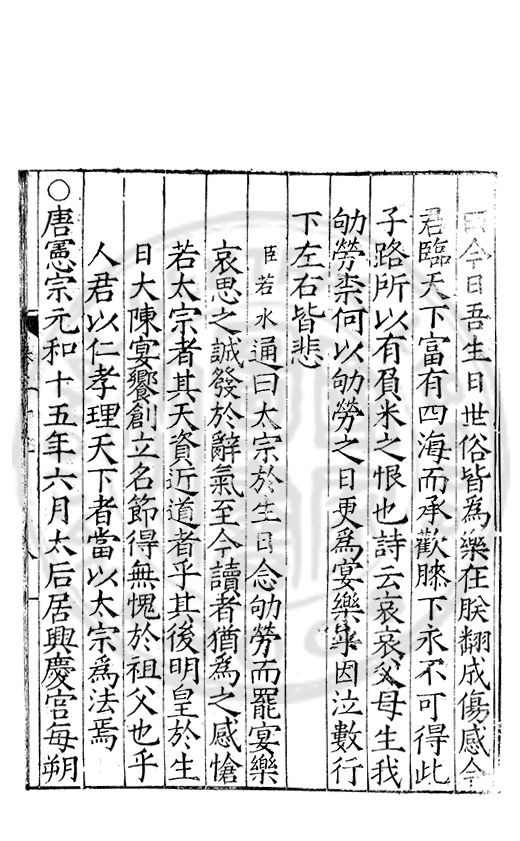 曰今日吾生日世俗皆為樂在朕翻成傷感今
君臨天下富有四海而承歡膝下永不可得此
子路所以有負米之恨也詩云哀哀父母生我
劬勞柰何以劬勞之日更為宴樂乎因泣數行
下左右皆悲
臣若水通曰太宗於生日念劬勞而罷宴樂
哀思之誠發於辭氣至今讀者猶為之感愴
若太宗者其天資近道者乎其後明皇於生
日大陳宴饗創立名節得無愧於祖父也乎
人君以仁孝理天下者當以太宗為法焉
○唐憲宗元和十五年六月太后居興慶宮每朔